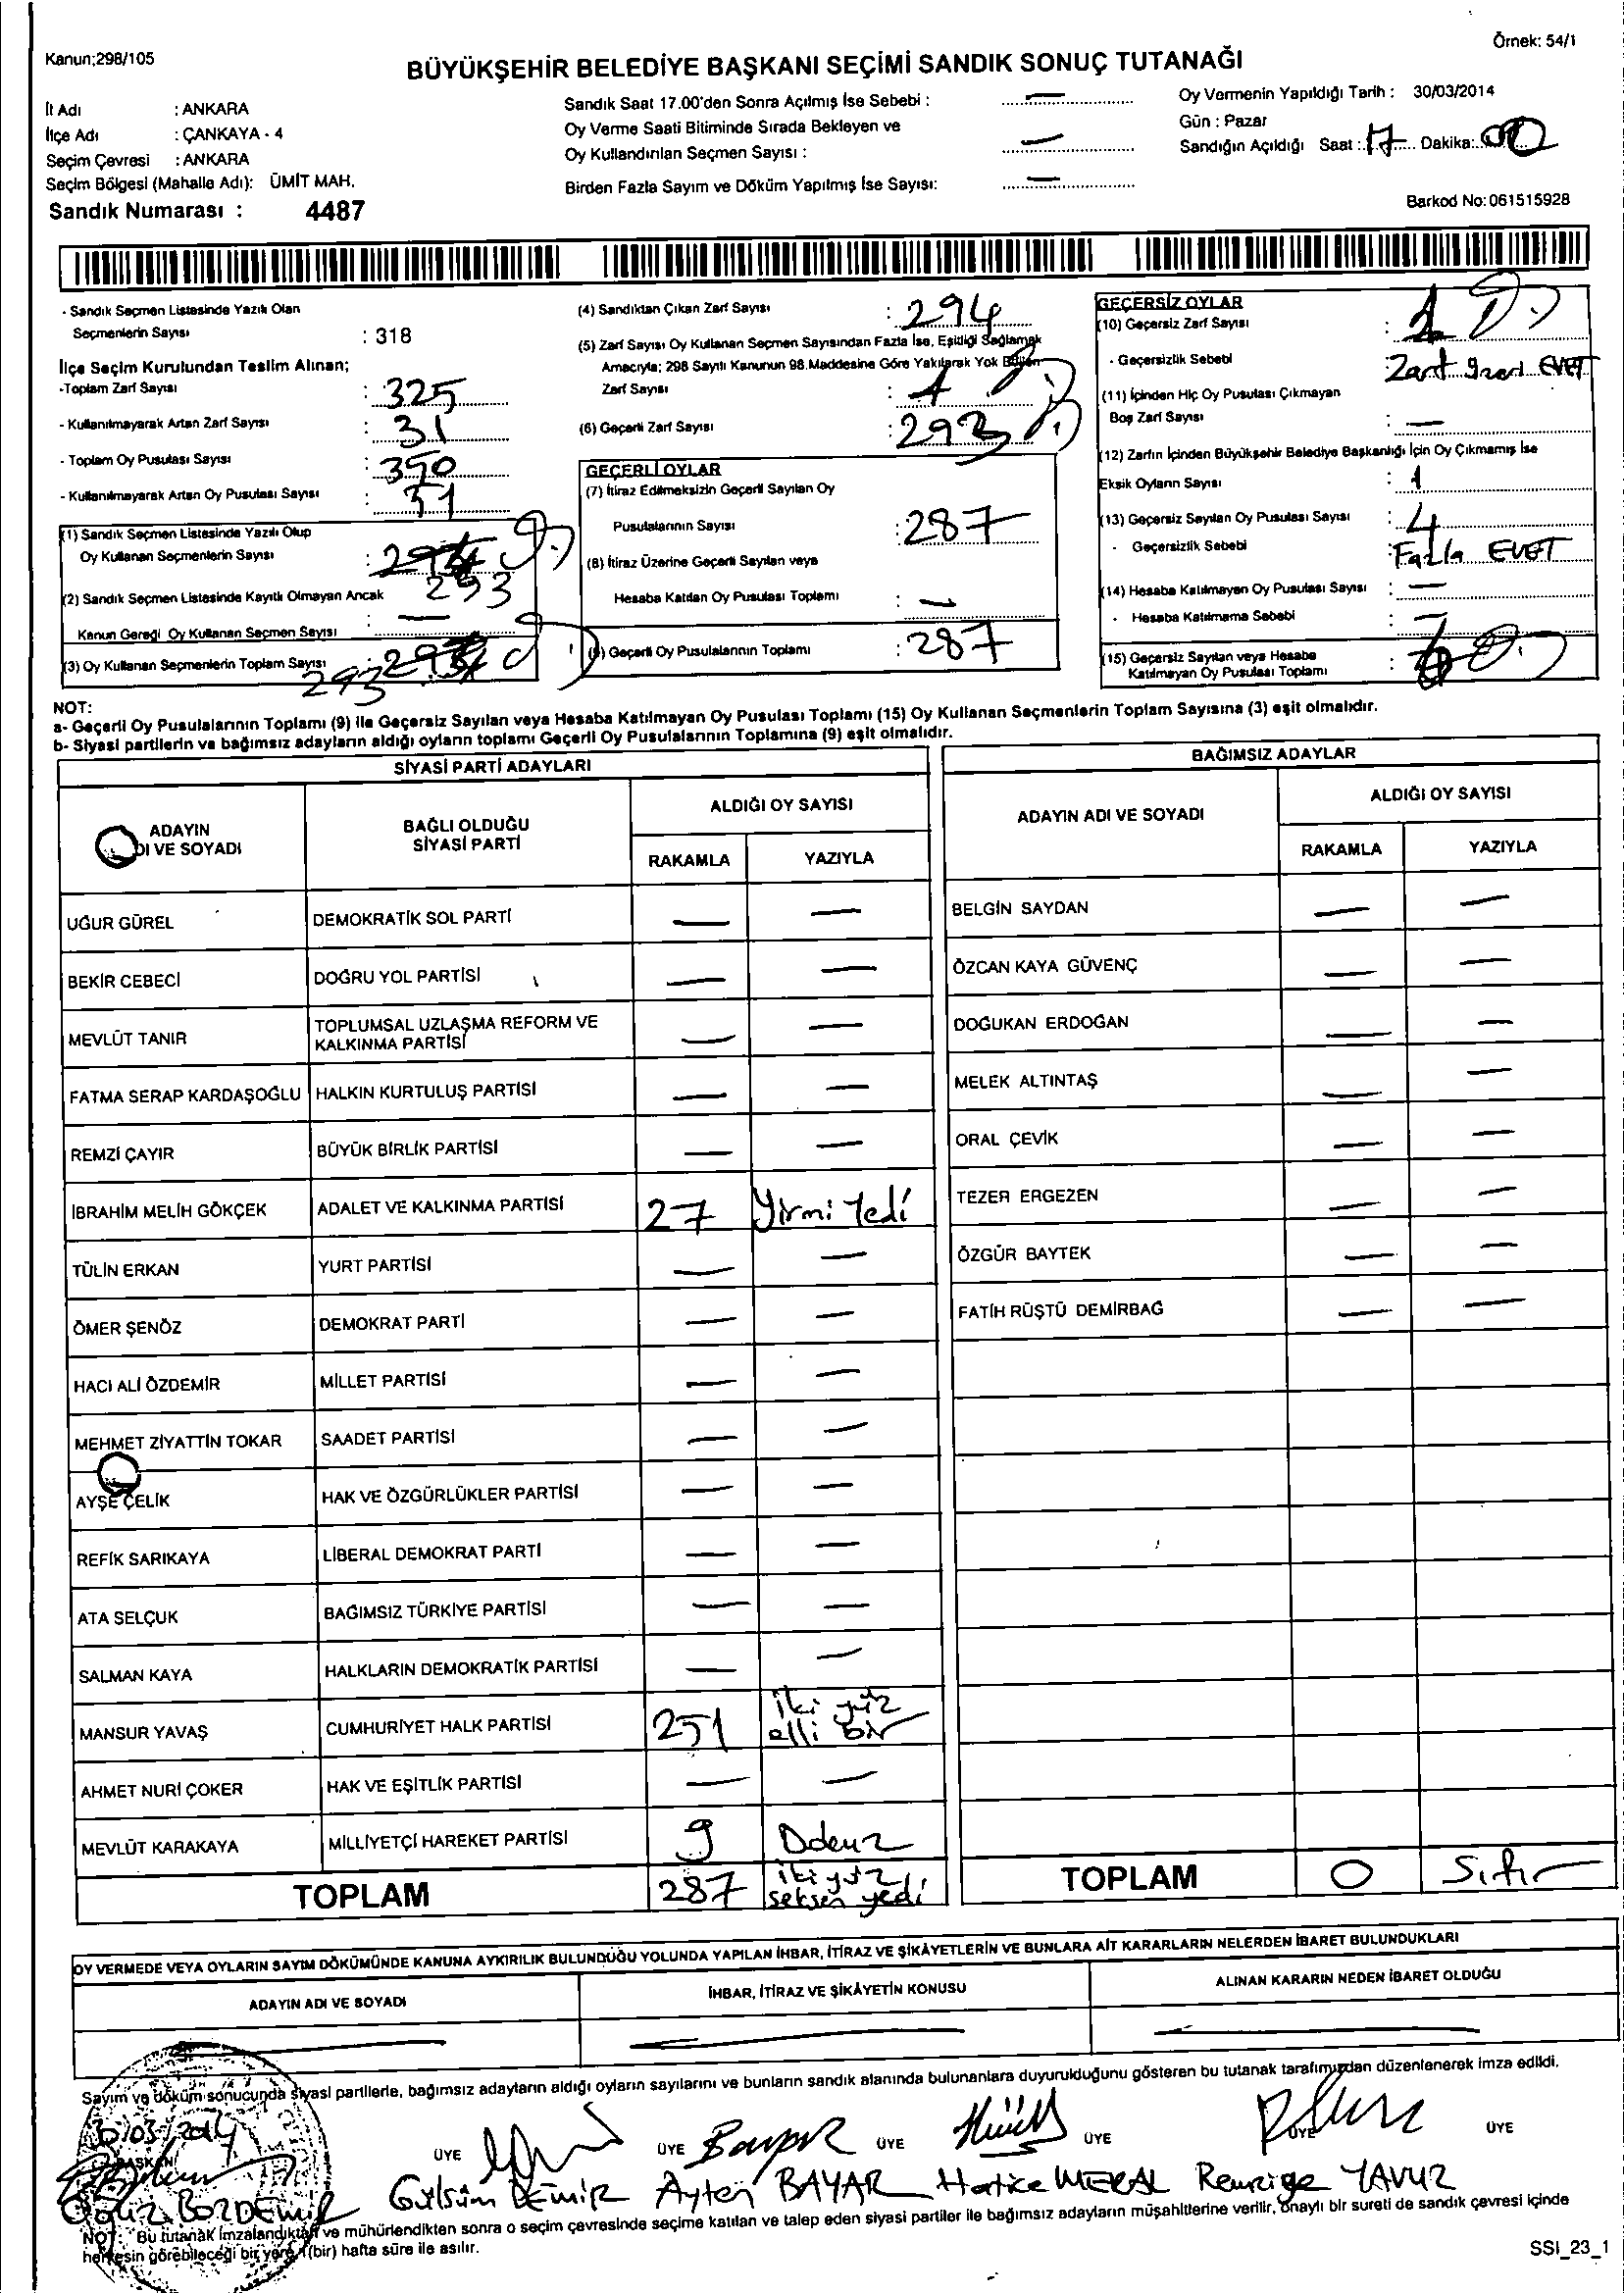 Kanun;298/105
Örnek: 54/1
BÜYÜKŞEHİR BELEDİYE BAŞKANI SEÇİMİ SANDIK SONUÇ TUTANAĞI
İl Adı : ANKARA
İlçe Adı : ÇANKAYA - 4
Seçim Çevresi : ANKARA
Seçim Bölgesi (Mahalle Adı): ÜMİT MAH.
Sandık Numarası : 4487
Sandık Saat 17.00'den Sonra Açılmış İse Sebebi : —
Oy Verme Saati Bitiminde Sırada Bekleyen ve
Oy Kullandırılan Seçmen Sayısı : —
Birden Fazla Sayım ve Döküm Yapılmış İse Sayısı: —
Oy Vermenin Yapıldığı Tarih : 30/03/2014
Gün : Pazar
Sandığın Açıldığı Saat : 17 Dakika: 00
Barkod No: 061515928
- Sandık Seçmen Listesinde Yazılı Olan
Seçmenlerin Sayısı : 318
İlçe Seçim Kurulundan Teslim Alınan;
-Toplam Zarf Sayısı : 325
- Kullanılmayarak Artan Zarf Sayısı : 31
- Toplam Oy Pusulası Sayısı :
- Kullanılmayarak Artan Oy Pusulası Sayısı :
(1) Sandık Seçmen Listesinde Yazılı Olup
Oy Kullanan Seçmenlerin Sayısı : 293
(2) Sandık Seçmen Listesinde Kayıtlı Olmayan Ancak
Kanun Gereği Oy Kullanan Seçmen Sayısı : —
(3) Oy Kullanan Seçmenlerin Toplam Sayısı : 293
(4) Sandıktan Çıkan Zarf Sayısı : 294
(5) Zarf Sayısı Oy Kullanan Seçmen Sayısından Fazla İse, Eşitliği Sağlamak
Amacıyla; 298 Sayılı Kanunun 98.Maddesine Göre Yakılarak Yok Edilen
Zarf Sayısı : 1
(6) Geçerli Zarf Sayısı : 293
GEÇERLİ OYLAR
(7) İtiraz Edilmeksizin Geçerli Sayılan Oy
Pusulalarının Sayısı : 287
(8) İtiraz Üzerine Geçerli Sayılan veya
Hesaba Katılan Oy Pusulası Toplamı : —
(9) Geçerli Oy Pusulalarının Toplamı : 287
GEÇERSİZ OYLAR
(10) Geçersiz Zarf Sayısı : 1
- Geçersizlik Sebebi : Zarf üzeri EVET
(11) İçinden Hiç Oy Pusulası Çıkmayan
Boş Zarf Sayısı : —
(12) Zarfın İçinden Büyükşehir Belediye Başkanlığı İçin Oy Çıkmamış İse
Eksik Oyların Sayısı : 1
(13) Geçersiz Sayılan Oy Pusulası Sayısı : 4
- Geçersizlik Sebebi : Fazla EVET
(14) Hesaba Katılmayan Oy Pusulası Sayısı : —
- Hesaba Katılmama Sebebi : —
(15) Geçersiz Sayılan veya Hesaba
Katılmayan Oy Pusulası Toplamı :
NOT:
a- Geçerli Oy Pusulalarının Toplamı (9) ile Geçersiz Sayılan veya Hesaba Katılmayan Oy Pusulası Toplamı (15) Oy Kullanan Seçmenlerin Toplam Sayısına (3) eşit olmalıdır.
b- Siyasi partilerin ve bağımsız adayların aldığı oyların toplamı Geçerli Oy Pusulalarının Toplamına (9) eşit olmalıdır.
SİYASİ PARTİ ADAYLARI
ADAYIN DI VE SOYADI BAĞLI OLDUĞU SİYASİ PARTİ ALDIĞI OY SAYISI
RAKAMLA YAZIYLA
UĞUR GÜREL DEMOKRATİK SOL PARTİ — —
BEKİR CEBECİ DOĞRU YOL PARTİSİ — —
MEVLÜT TANIR TOPLUMSAL UZLAŞMA REFORM VE KALKINMA PARTİSİ — —
FATMA SERAP KARDAŞOĞLU HALKIN KURTULUŞ PARTİSİ — —
REMZİ ÇAYIR BÜYÜK BİRLİK PARTİSİ — —
İBRAHİM MELİH GÖKÇEK ADALET VE KALKINMA PARTİSİ 27 Yirmi Yedi
TÜLİN ERKAN YURT PARTİSİ — —
ÖMER ŞENÖZ DEMOKRAT PARTİ — —
HACI ALİ ÖZDEMİR MİLLET PARTİSİ — —
MEHMET ZİYATTİN TOKAR SAADET PARTİSİ — —
AYŞE ÇELİK HAK VE ÖZGÜRLÜKLER PARTİSİ — —
REFİK SARIKAYA LİBERAL DEMOKRAT PARTİ — —
ATA SELÇUK BAĞIMSIZ TÜRKİYE PARTİSİ — —
SALMAN KAYA HALKLARIN DEMOKRATİK PARTİSİ — —
MANSUR YAVAŞ CUMHURİYET HALK PARTİSİ 251 iki yüz elli bir
AHMET NURİ ÇOKER HAK VE EŞİTLİK PARTİSİ — —
MEVLÜT KARAKAYA MİLLİYETÇİ HAREKET PARTİSİ 9 Dokuz
TOPLAM 287 iki yüz seksen yedi
BAĞIMSIZ ADAYLAR
ADAYIN ADI VE SOYADI ALDIĞI OY SAYISI
RAKAMLA YAZIYLA
BELGİN SAYDAN — —
ÖZCAN KAYA GÜVENÇ — —
DOĞUKAN ERDOĞAN — —
MELEK ALTINTAŞ — —
ORAL ÇEVİK — —
TEZER ERGEZEN — —
ÖZGÜR BAYTEK — —
FATİH RÜŞTÜ DEMİRBAĞ — —
TOPLAM 0 Sıfır
OY VERMEDE VEYA OYLARIN SAYIM DÖKÜMÜNDE KANUNA AYKIRILIK BULUNDUĞU YOLUNDA YAPILAN İHBAR, İTİRAZ VE ŞİKÂYETLERİN VE BUNLARA AİT KARARLARIN NELERDEN İBARET BULUNDUKLARI
ADAYIN ADI VE SOYADI İHBAR, İTİRAZ VE ŞİKÂYETİN KONUSU ALINAN KARARIN NEDEN İBARET OLDUĞU
Sayım ve döküm sonucunda siyasi partilerle, bağımsız adayların aldığı oyların sayılarını ve bunların sandık alanında bulunanlara duyurulduğunu gösteren bu tutanak tarafımızdan düzenlenerek imza edildi.
30/03/2014
BAŞKAN ÜYE ÜYE ÜYE ÜYE ÜYE ÜYE
Oğuz BOZDEMİR Gülsüm DEMİR Ayten BAYAR Hatice MERAL Remziye YAVUZ
NOT: Bu tutanak imzalandıktan ve mühürlendikten sonra o seçim çevresinde seçime katılan ve talep eden siyasi partiler ile bağımsız adayların müşahitlerine verilir, onaylı bir sureti de sandık çevresi içinde
herkesin görebileceği bir yere 1 (bir) hafta süre ile asılır.
SSI_23_1